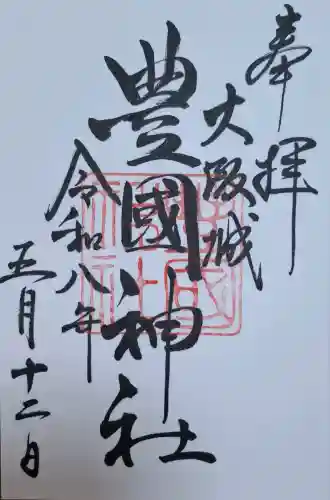 奉拝
大阪城
豊國神社
令和八年
五月十二日